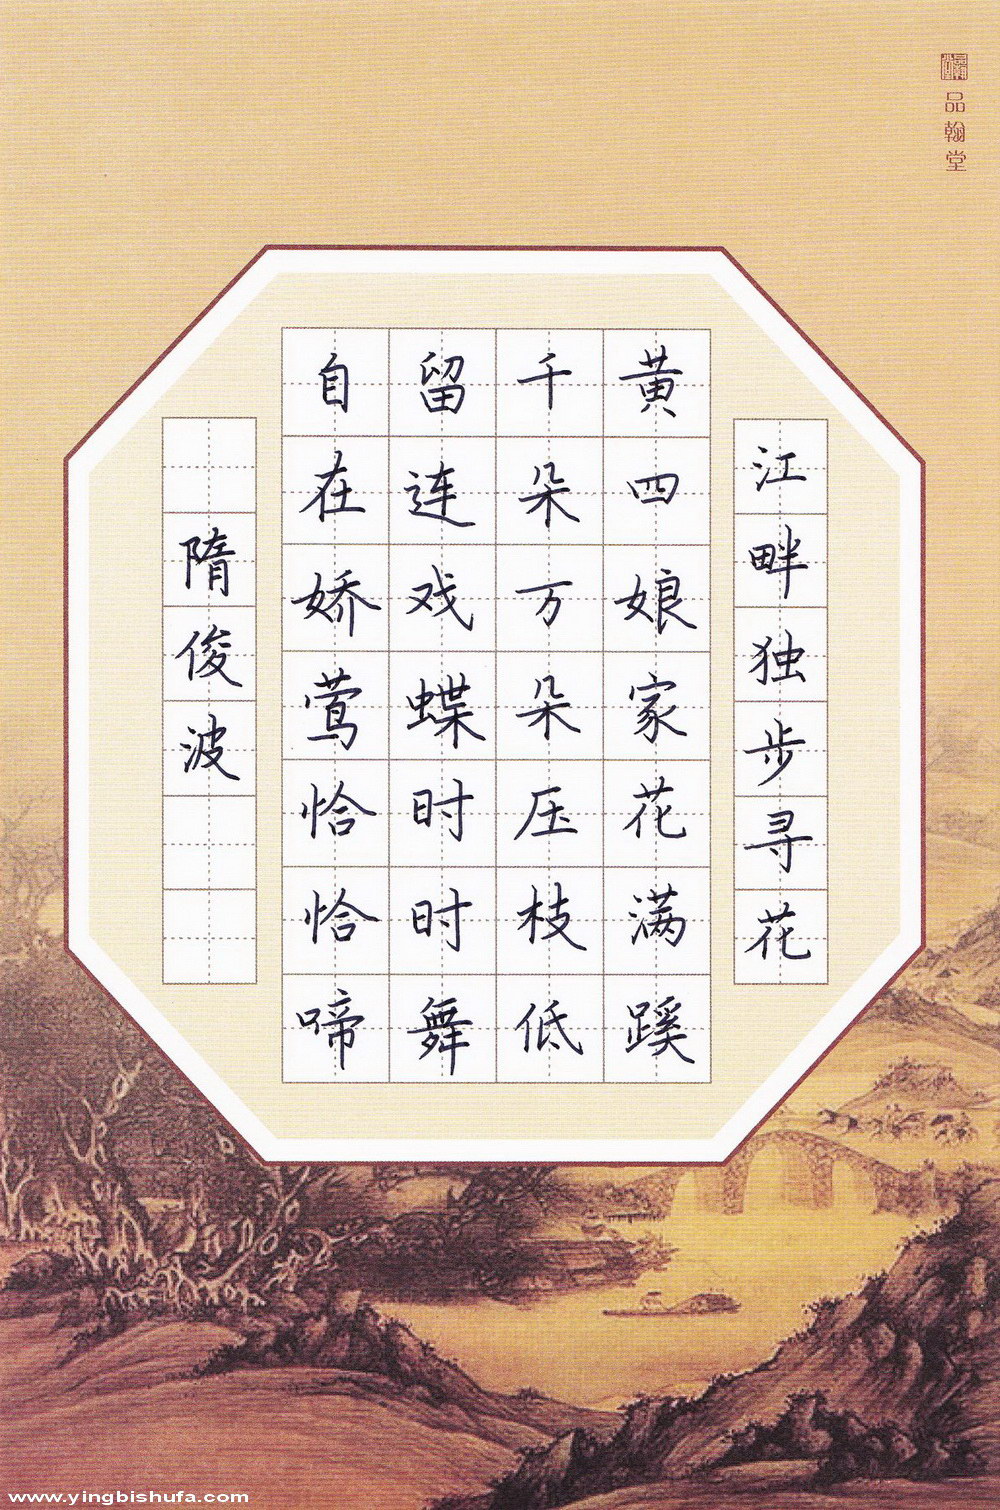 品翰堂
江畔独步寻花
黄四娘家花满蹊
千朵万朵压枝低
留连戏蝶时时舞
自在娇莺恰恰啼
隋俊波
www.yingbishufa.com